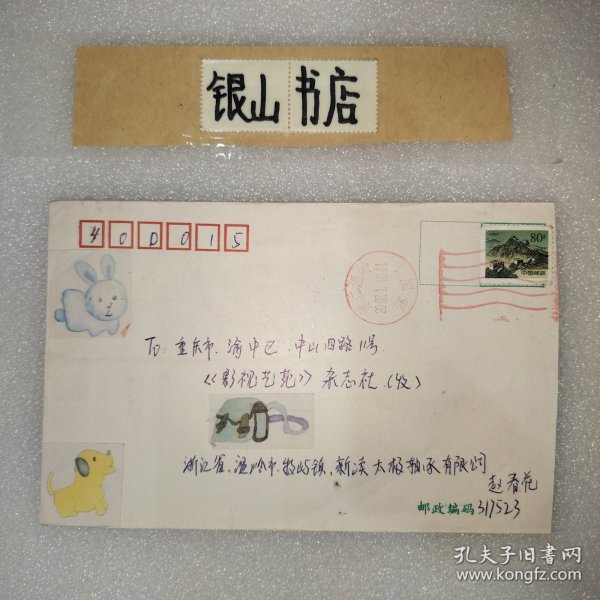 银山书店
400015
80分
中国邮政
To: 重庆市、渝中区、中山四路11号
《影视艺苑》杂志社(收)
浙江省、温岭市、牧屿镇、新溪太极轴承有限公司
赵春花
邮政编码 317523
孔夫子旧书网
www.kongfz.com